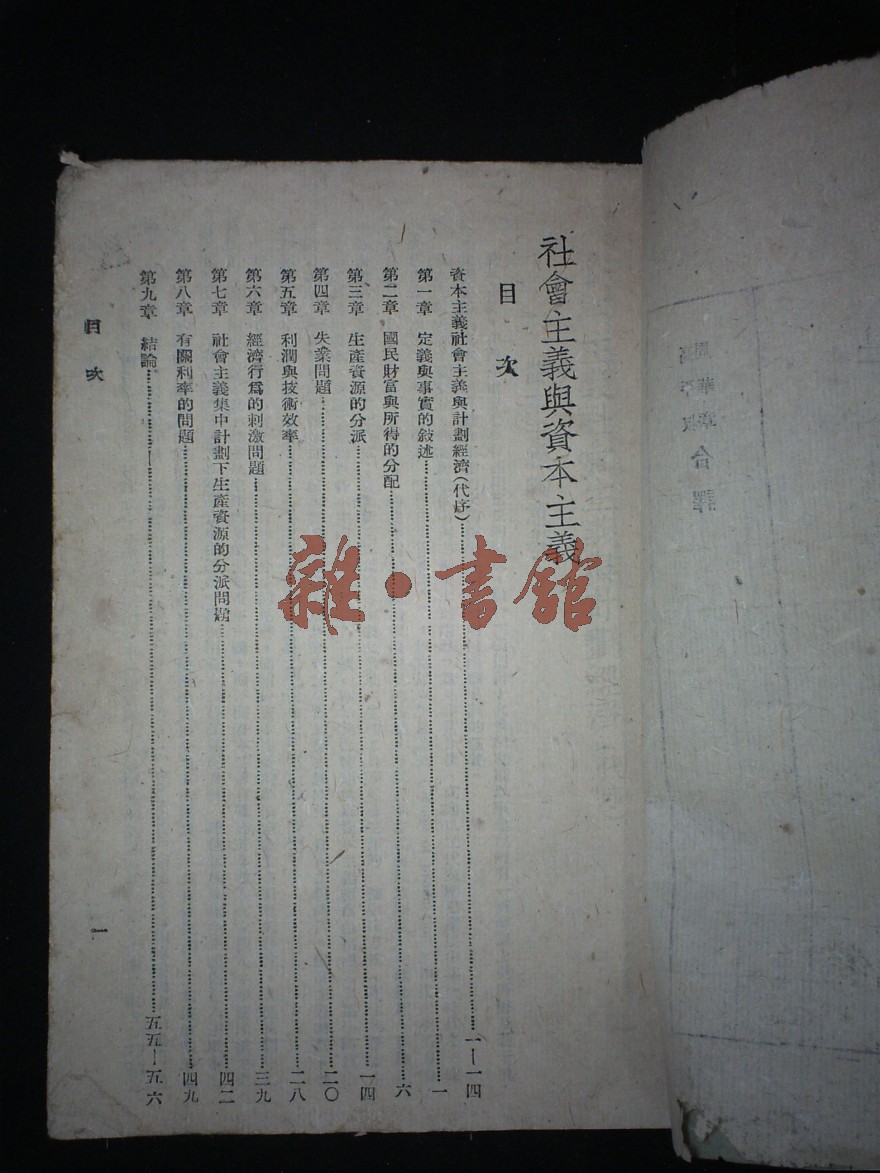 社會主義與資本主義
目次
資本主義社會主義與計劃經濟(代序)……一—一四
第一章 定義與事實的敍述……一
第二章 國民財富與所得的分配……六
第三章 生產資源的分派……一四
第四章 失業問題……二〇
第五章 利潤與技術效率……二八
第六章 經濟行爲的刺激問題……三九
第七章 社會主義集中計劃下生產資源的分派問題……四二
第八章 有關利率的問題……四九
第九章 結論……五五—五六
目次
一
雜·書館
合譯